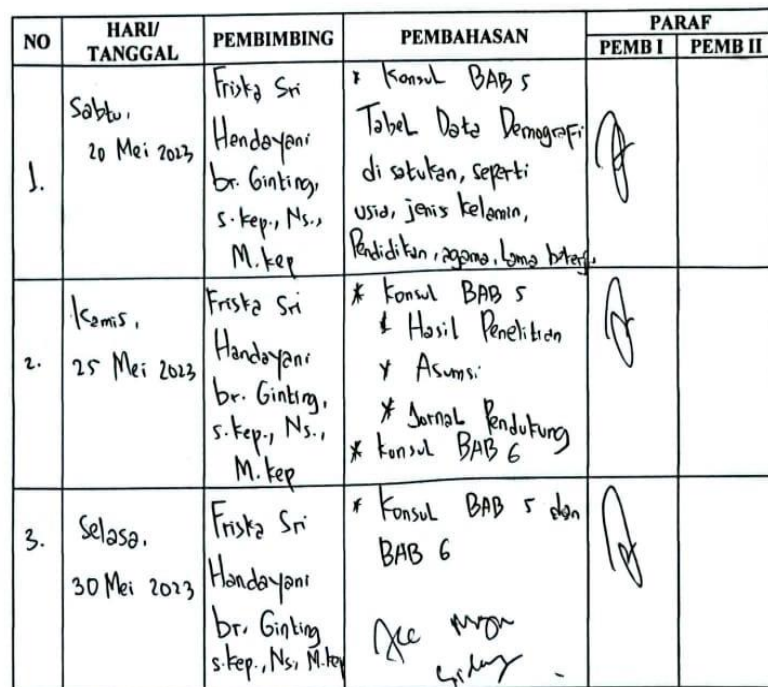 NO HARI/ TANGGAL PEMBIMBING PEMBAHASAN PARAF
PEMB I PEMB II
1.
Sabtu,
20 Mei 2023
Friska Sri
Handayani
br. Ginting,
S.kep., Ns.,
M.kep
* Konsul BAB 5
Tabel Data Demografi
di satukan, seperti
usia, jenis kelamin,
Pendidikan, agama, lama
2.
Kamis,
25 Mei 2023
Friska Sri
Handayani
br. Ginting,
S.kep., Ns.,
M.kep
* Konsul BAB 5
* Hasil Penelitian
* Asumsi
* Jornal Pendukung
* Konsul BAB 6
3.
Selasa,
30 Mei 2023
Friska Sri
Handayani
br. Ginting
S.kep., Ns, M.kep
* Konsul BAB 5 dan
BAB 6
Acc